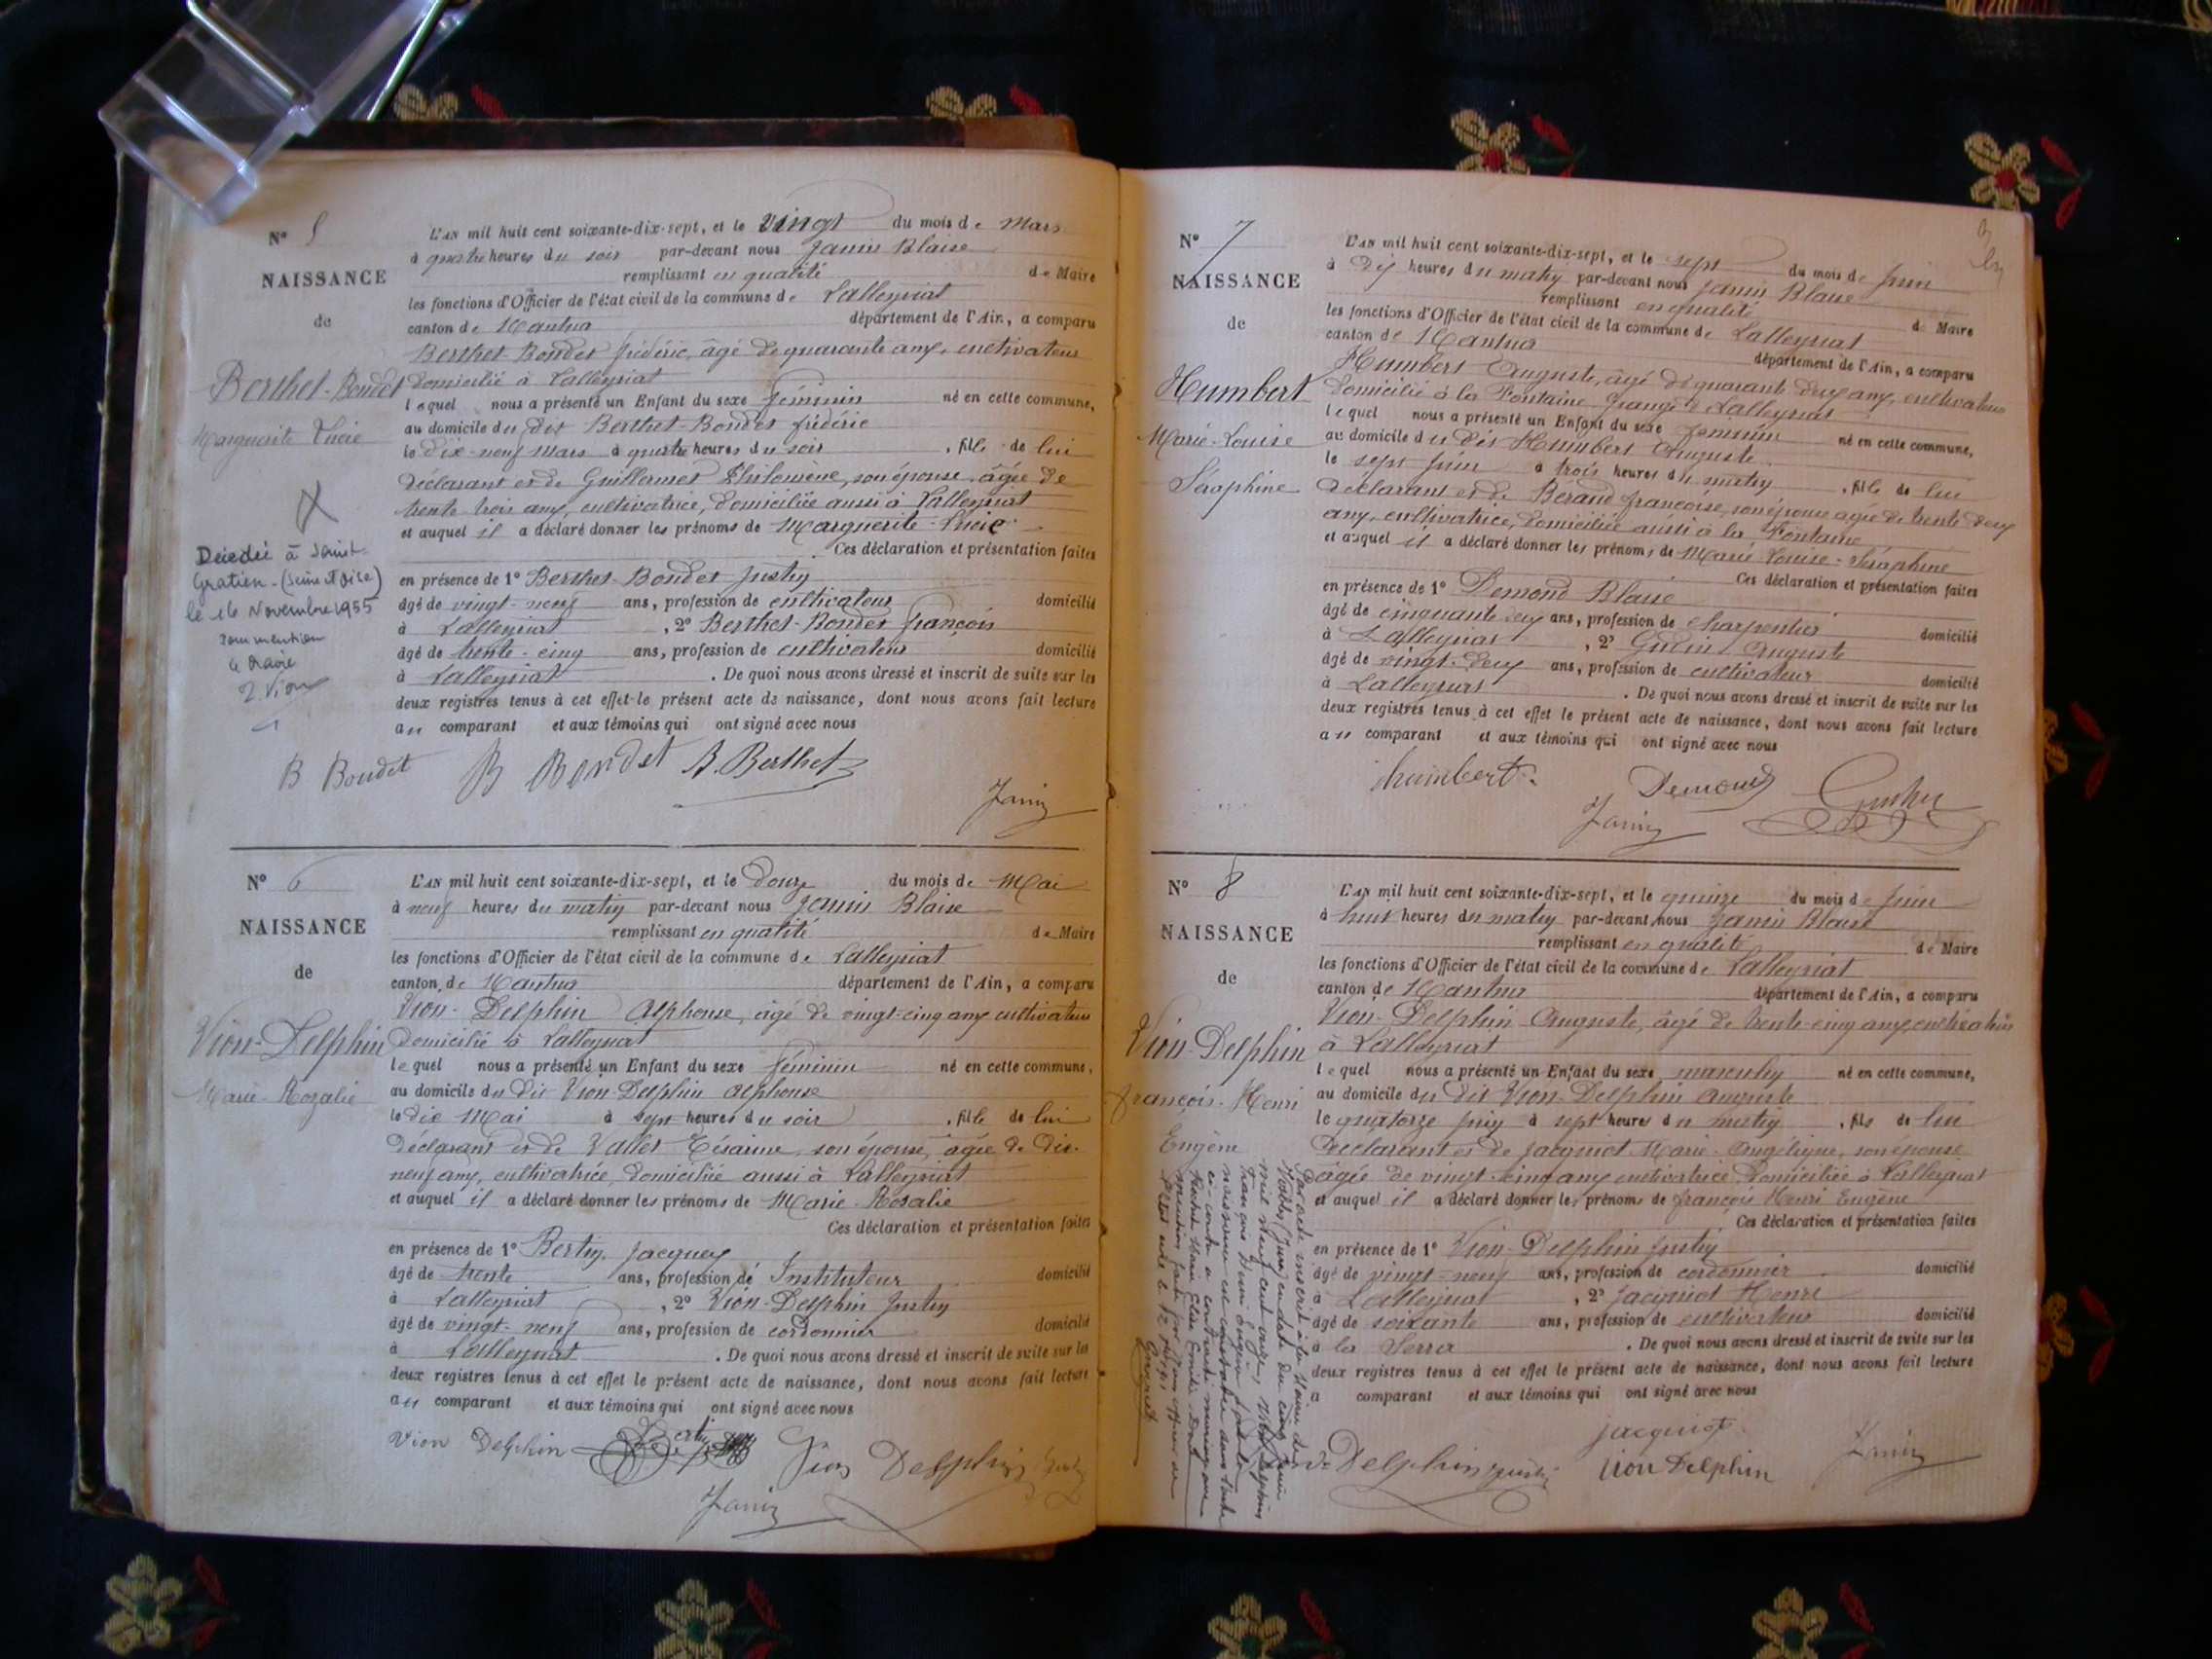 N° 5
NAISSANCE
de
Berthet-Bondet
Marguerite Lucie
Décédée à Saint-
Gratien - (Seine et Oise)
le 16 Novembre 1955
L'AN mil huit cent soixante-dix-sept, et le vingt du mois de Mars
à quatre heures du soir par-devant nous Janin Blaise
remplissant en qualité de Maire
les fonctions d'Officier de l'état civil de la commune de Lalleyriat
canton de Nantua département de l'Ain, a comparu
Berthet-Bondet frédéric, âgé de quarante ans, cultivateur
domicilié à Lalleyriat
lequel nous a présenté un Enfant du sexe féminin né en cette commune,
au domicile du dit Berthet-Bondet frédéric
le dix-neuf mars à quatre heures du soir, fille de lui
déclarant et de Guillermet Philomène, son épouse, âgée de
trente trois ans, cultivatrice, domiciliée aussi à Lalleyriat
et auquel il a déclaré donner les prénoms de Marguerite-Lucie
Ces déclaration et présentation faites
en présence de 1° Berthet-Bondet Justin
âgé de vingt-neuf ans, profession de cultivateur domicilié
à Lalleyriat, 2° Berthet-Bondet françois
âgé de trente-cinq ans, profession de cultivateur domicilié
à Lalleyriat. De quoi nous avons dressé et inscrit de suite sur les
deux registres tenus à cet effet le présent acte de naissance, dont nous avons fait lecture
au comparant et aux témoins qui ont signé avec nous
B Boudet B Bondet B. Berthet
Janin
N° 6
NAISSANCE
de
Vion-Delphin
Marie-Rozalie
L'AN mil huit cent soixante-dix-sept, et le douze du mois de Mai
à neuf heures du matin par-devant nous Janin Blaise
remplissant en qualité de Maire
les fonctions d'Officier de l'état civil de la commune de Lalleyriat
canton de Nantua département de l'Ain, a comparu
Vion-Delphin Alphonse, âgé de vingt-cinq ans cultivateur
Domicilié à Lalleyriat
lequel nous a présenté un Enfant du sexe féminin né en cette commune,
au domicile du dit Vion-Delphin alphonse
le dix Mai à sept heures du soir, fille de lui
déclarant et de Vallet Césarine, son épouse, âgée de dix-
neuf ans, cultivatrice, domiciliée aussi à Lalleyriat
et auquel il a déclaré donner les prénoms de Marie-Rosalie
Ces déclaration et présentation faites
en présence de 1° Bertin Jacques
âgé de trente ans, profession de Instituteur domicilié
à Lalleyriat, 2° Vion-Delphin Justin
âgé de vingt-neuf ans, profession de cordonnier domicilié
à Lalleyriat. De quoi nous avons dressé et inscrit de suite sur les
deux registres tenus à cet effet le présent acte de naissance, dont nous avons fait lecture
au comparant et aux témoins qui ont signé avec nous
Vion Delphin Bertin Vion Delphin
Janin
N° 7
NAISSANCE
de
Humbert
Marie-Louise
Séraphine
L'AN mil huit cent soixante-dix-sept, et le sept du mois de Juin
à dix heures du matin par-devant nous Janin Blaise
remplissant en qualité de Maire
les fonctions d'Officier de l'état civil de la commune de Lalleyriat
canton de Nantua département de l'Ain, a comparu
Humbert Auguste, âgé de quarante deux ans, cultivateur
domicilié à la Fontaine grange de Lalleyriat
lequel nous a présenté un Enfant du sexe féminin né en cette commune,
au domicile du dit Humbert Auguste
le sept Juin à trois heures du matin, fille de lui
déclarant et de Béraud françoise, son épouse âgée de trente deux
ans, cultivatrice, domiciliée aussi à la Fontaine
et auquel il a déclaré donner les prénoms de Marie Louise-Séraphine
Ces déclaration et présentation faites
en présence de 1° Demond Blaise
âgé de cinquante ans, profession de charpentier domicilié
à Lalleyriat, 2° Auguste
âgé de vingt-deux ans, profession de cultivateur domicilié
à Lalleyriat. De quoi nous avons dressé et inscrit de suite sur les
deux registres tenus à cet effet le présent acte de naissance, dont nous avons fait lecture
au comparant et aux témoins qui ont signé avec nous
humbert Demond
Janin
N° 8
NAISSANCE
de
Vion-Delphin
françois-Henri
Eugène
L'AN mil huit cent soixante-dix-sept, et le quinze du mois de Juin
à huit heures du matin par-devant nous Janin Blaise
remplissant en qualité de Maire
les fonctions d'Officier de l'état civil de la commune de Lalleyriat
canton de Nantua département de l'Ain, a comparu
Vion-Delphin Auguste, âgé de trente-cinq ans, cultivateur
à Lalleyriat
lequel nous a présenté un Enfant du sexe masculin né en cette commune,
au domicile du dit Vion-Delphin auguste
le quatorze juin à sept heures du matin, fils de lui
déclarant et de Jacquiot Marie-Angélique, son épouse
âgée de vingt-cinq ans cultivatrice, domiciliée à Lalleyriat
et auquel il a déclaré donner les prénoms de françois Henri Eugène
Ces déclaration et présentation faites
en présence de 1° Vion-Delphin Justin
âgé de vingt-neuf ans, profession de cordonnier domicilié
à Lalleyriat, 2° Jacquiot Henri
âgé de soixante ans, profession de cultivateur domicilié
à la Serra. De quoi nous avons dressé et inscrit de suite sur les
deux registres tenus à cet effet le présent acte de naissance, dont nous avons fait lecture
a comparant et aux témoins qui ont signé avec nous
jacquiot
Delphin justin vion Delphin Janin